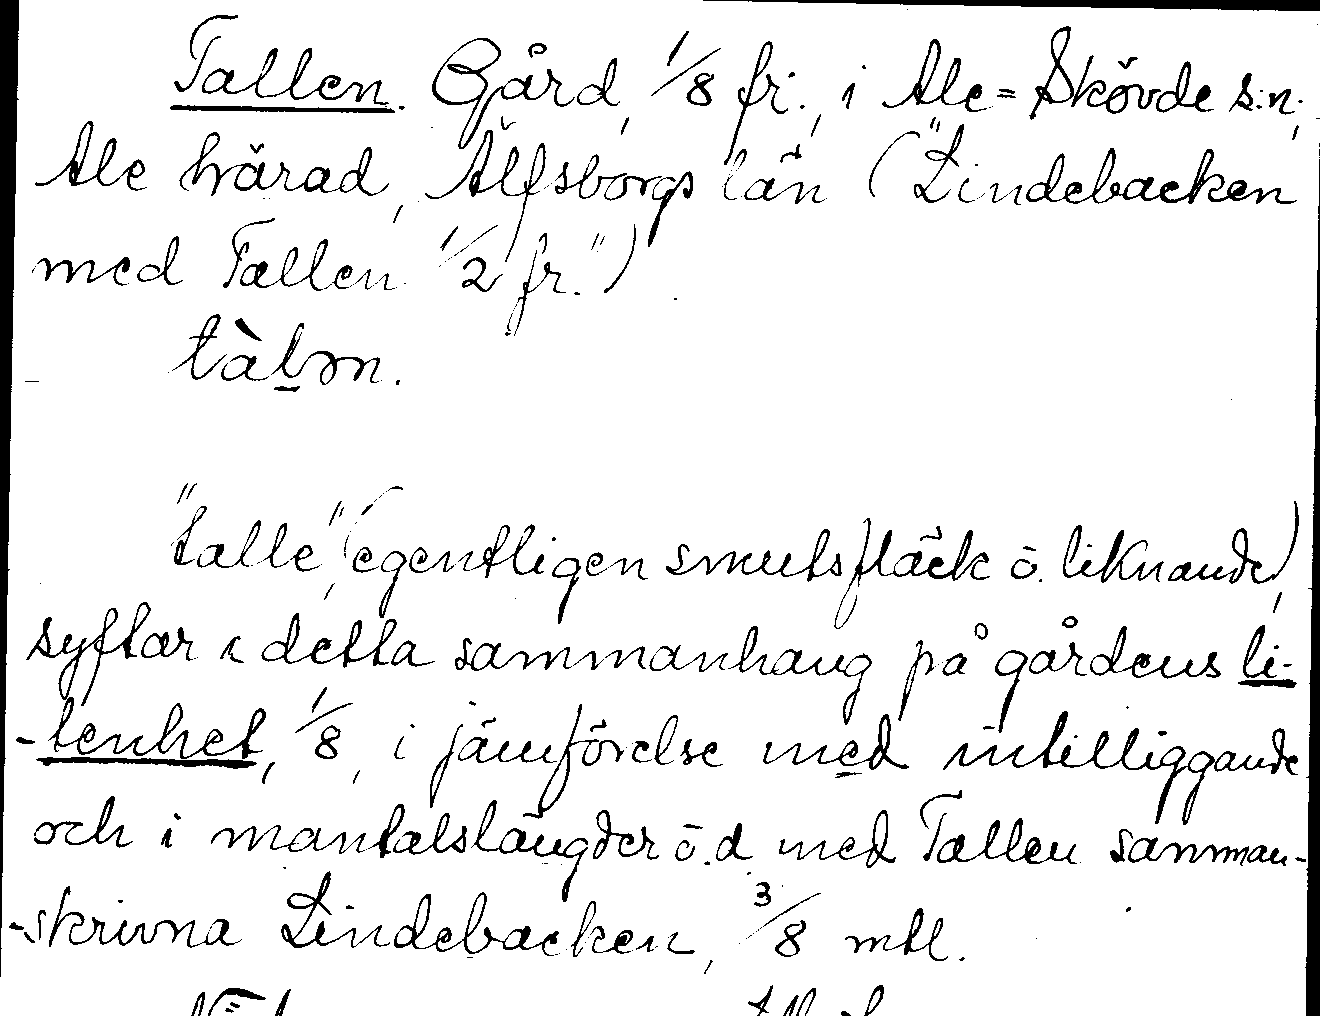 Tallen. Gård, 1/8 fr., i Ale=Skövde s:n,
Ale härad, Älfsborgs län ("Lindebacken
med Tallen 1/2 fr.")
tàlən.
"talle", (egentligen smutsfläck o. liknande),
syftar i detta sammanhang på gårdens li-
-tenhet, 1/8, i jämförelse med intilliggande
och i mantalslängder o.d med Tallen samman-
-skrivna Lindebacken, 3/8 mtl.